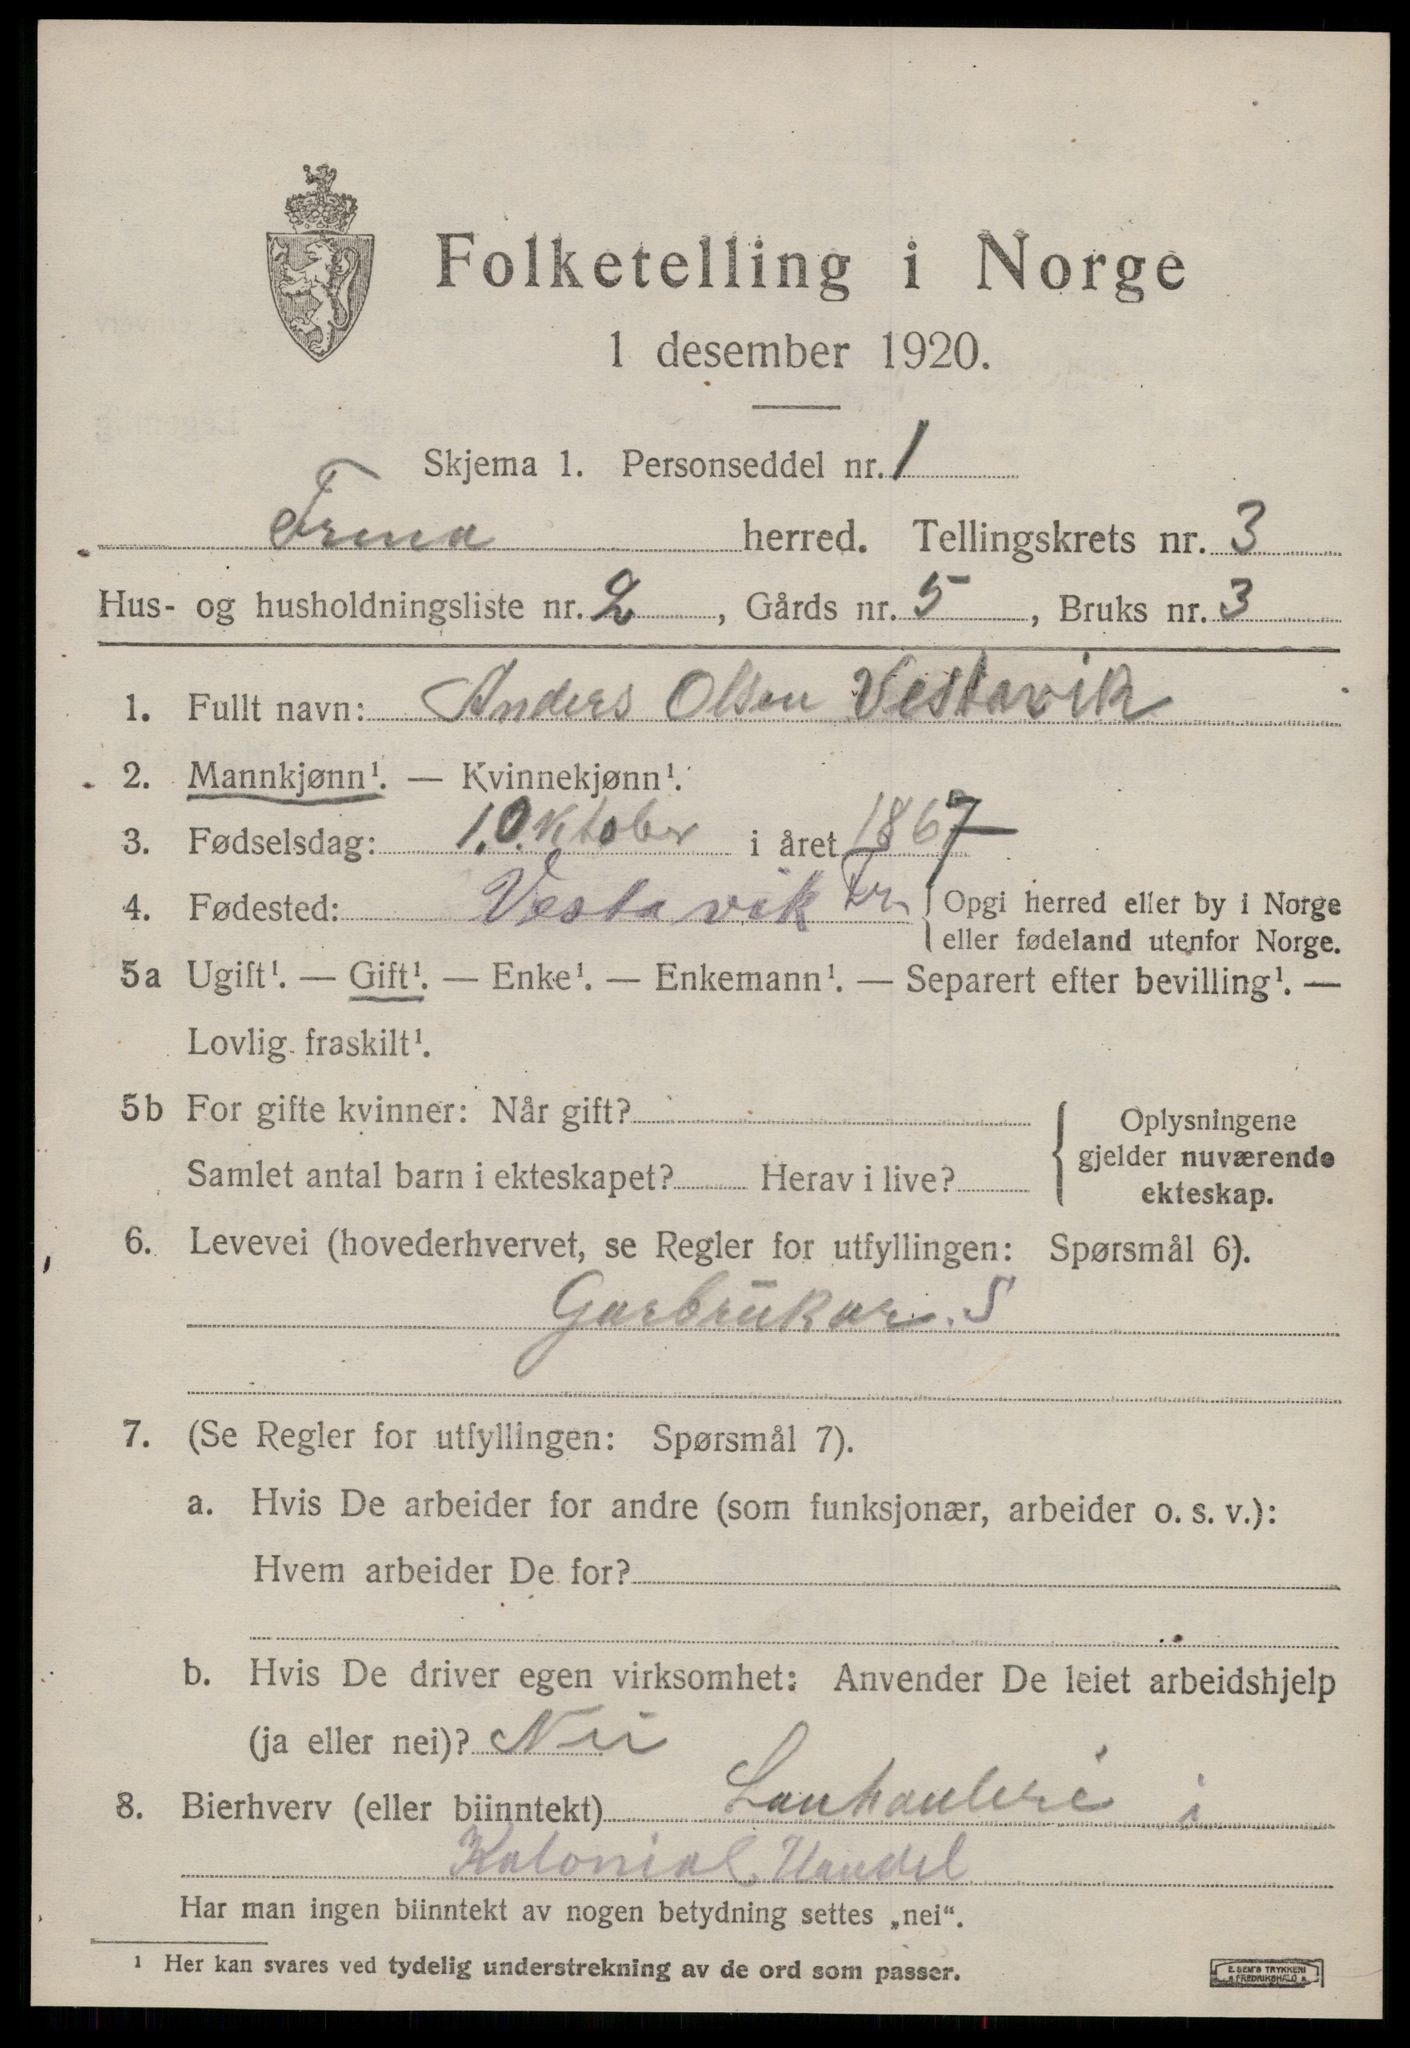 Folketelling i Norge
1 desember 1920.
Skjema 1. Personseddel nr. 1
Frena herred. Tellingskrets nr. 3
Hus- og husholdningsliste nr. 2, Gårds nr. 5, Bruks nr. 3
1. Fullt navn: Anders Olsen Vestavik
2. Mannkjønn¹. — Kvinnekjønn¹.
3. Fødselsdag: 1. Oktober i året 1867
4. Fødested: Vestavik Fr. { Opgi herred eller by i Norge
eller fødeland utenfor Norge.
5a Ugift¹. — Gift¹. — Enke¹. — Enkemann¹. — Separert efter bevilling¹. —
Lovlig fraskilt¹.
5b For gifte kvinner: Når gift?
Samlet antal barn i ekteskapet? Herav i live?
Oplysningene
gjelder nuværende
ekteskap.
6. Levevei (hovederhvervet, se Regler for utfyllingen: Spørsmål 6).
Garbrükar. S
7. (Se Regler for utfyllingen: Spørsmål 7).
a. Hvis De arbeider for andre (som funksjonær, arbeider o. s. v.):
Hvem arbeider De for?
b. Hvis De driver egen virksomhet: Anvender De leiet arbeidshjelp
(ja eller nei)? Nei
8. Bierhverv (eller biinntekt) Lanhanleri i
Kolonial Handel
Har man ingen biinntekt av nogen betydning settes „nei“.
¹ Her kan svares ved tydelig understrekning av de ord som passer.
E. SEM'S TRYKKERI
FREDRIKSHALD